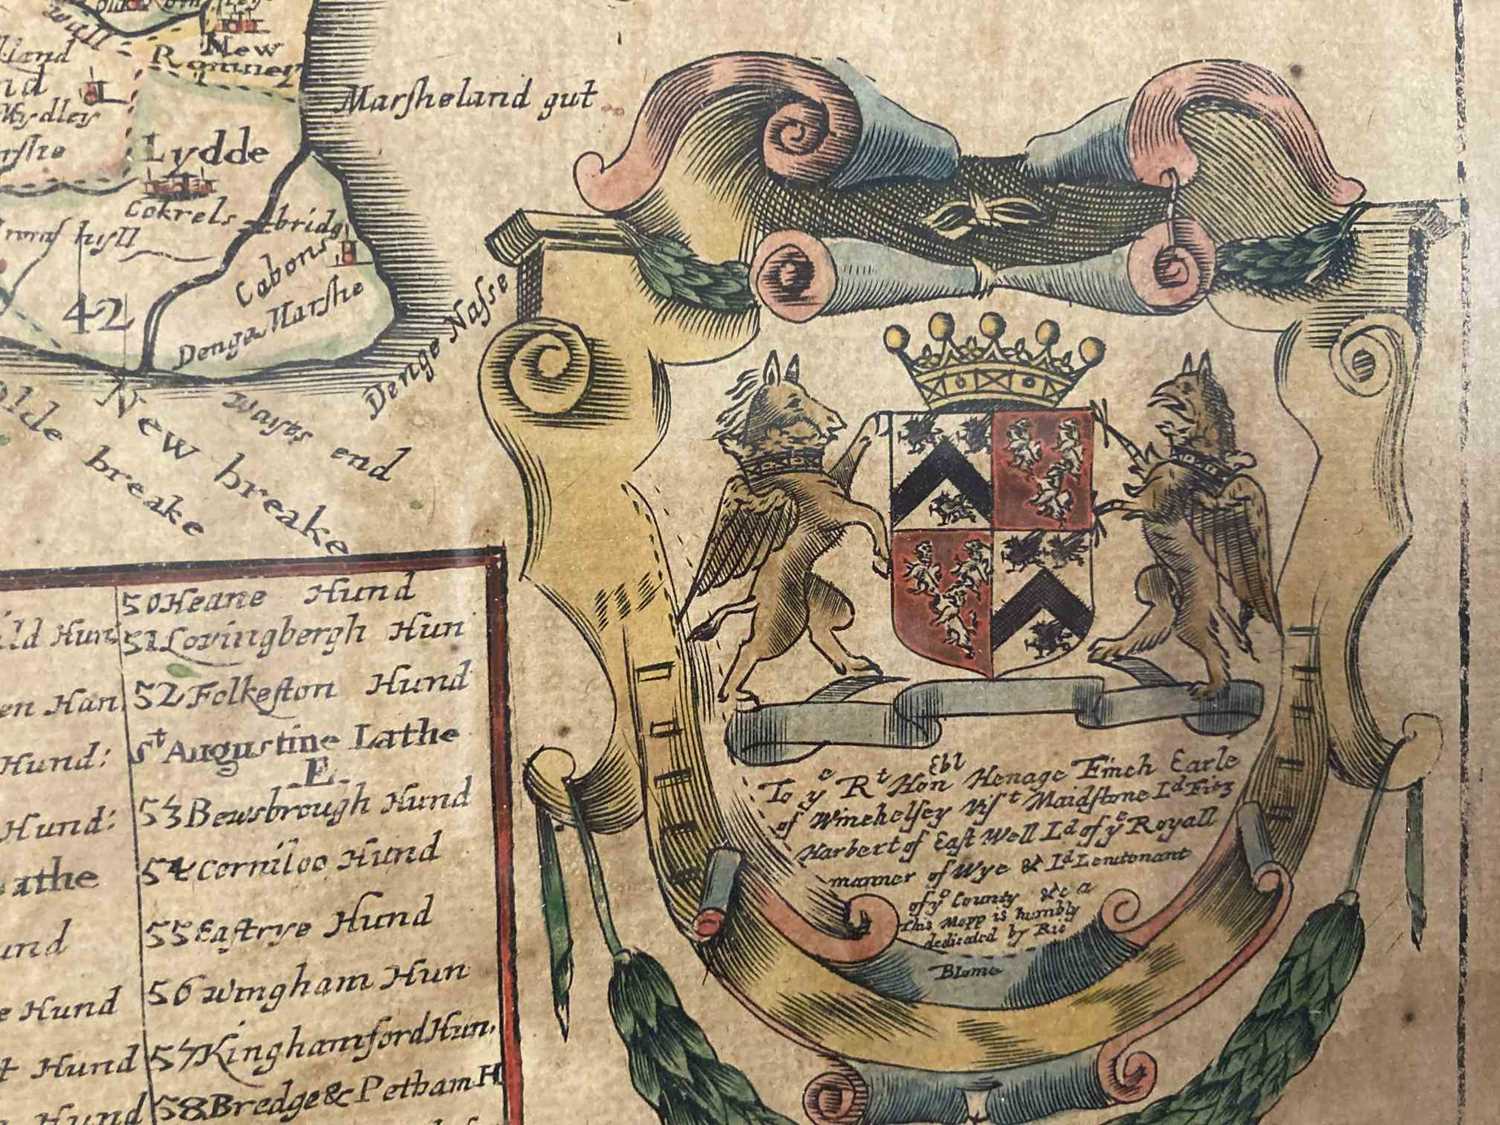 New
Romney
land
Marsheland gut
Wydley
Lydde
Cokrels bridg
hyll
Cabons
42
Denga Marshe
Denge Nasse
olde breake
New breake
Wayss end
50 Heane Hund
ild Hun 51 Lovingbergh Hun
en Han 52 Folkeston Hund
Hund: St Augustine Lathe
E.
Hund: 53 Bewsbrough Hund
athe 54 Corniloo Hund
und 55 Eastrye Hund
e Hund 56 Wingham Hun
t Hund 57 Kinghamford Hun.
Hund 58 Bredge & Petham H
To ye Rt Hon Ebl Henage Finch Earle
of Winchelsey Vist Maidstone Ld Fitz
Harbert of East Well Ld of ye Royall
manner of Wye & Ld Leutonant
of ye County &c a
This Mapp is humbly
dedicated by Ric
Blome